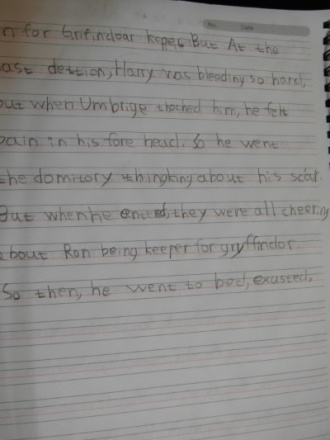 n for Grifindoar keper. But At the
last dettion, Harry was bleading so hard,
but when Umbrige tached him, he felt
pain in his fore head. So he went
the domitory thingking about his scar.
But when he entred, they were all cheering
about Ron being keeper for gryffindor.
So then, he went to bed, exusted.